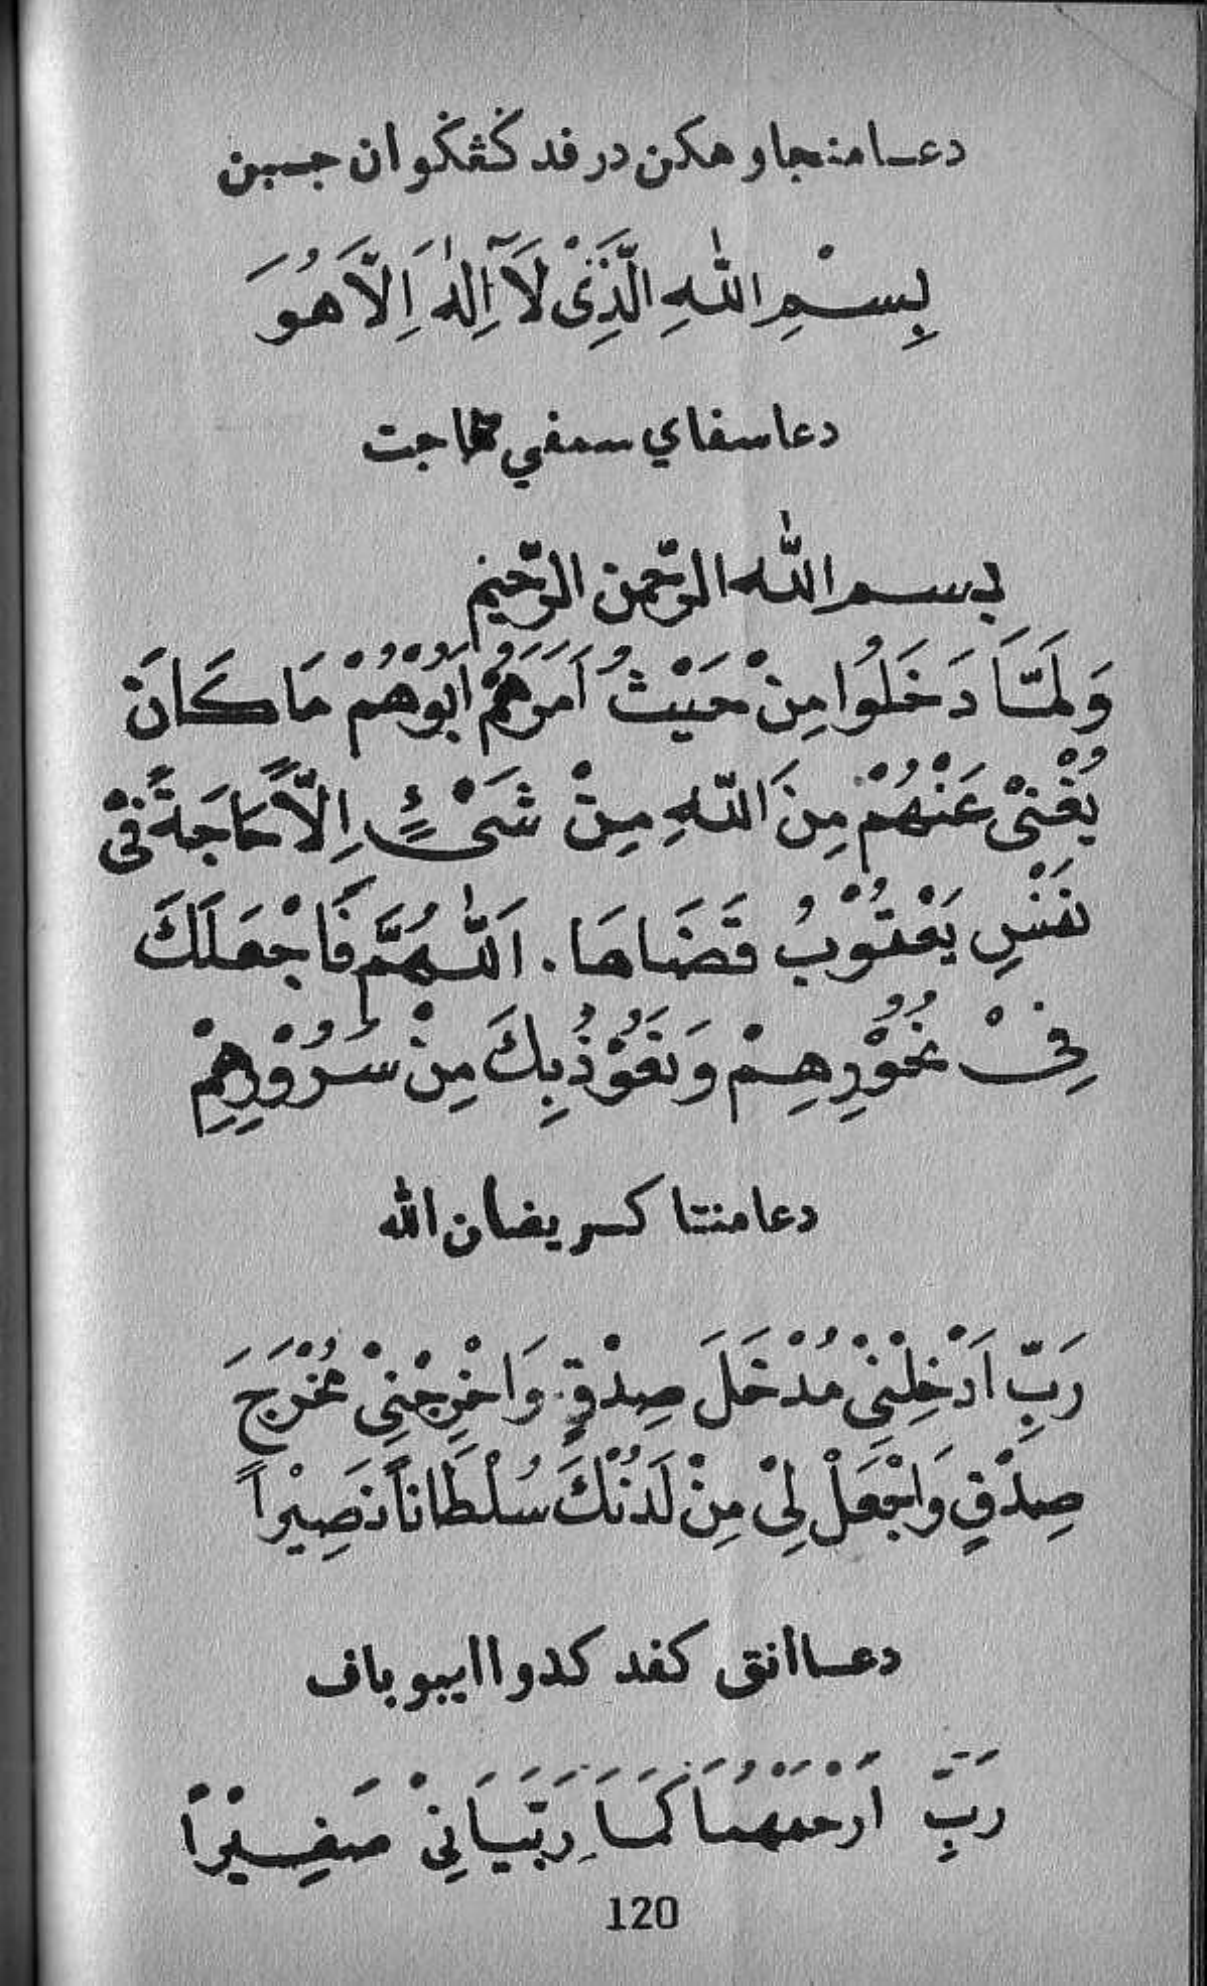 دعا منجاوهكن درفد ڬڠݢوان جين
بِسْمِ اللهِ الَّذِىْ لَآ اِلٰهَ اِلَّا هُوَ
دعا سفاي سمفي حاجت
بسم الله الرّحمن الرّحيم
وَلَمَّا دَخَلُوا مِنْ حَيْثُ اَمَرَهُمْ اَبُوْهُمْ مَا كَانَ
يُغْنِىْ عَنْهُمْ مِنَ اللّٰهِ مِنْ شَىْءٍ اِلَّا حَاجَةً فِىْ
نَفْسِ يَعْقُوْبُ قَضَاهَا . اَللّٰهُمَّ فَاجْعَلَكَ
فِىْ نُحُوْرِهِمْ وَنَعُوْذُ بِكَ مِنْ سُرُوْرِهِمْ
دعا منتا كريضان الله
رَبِّ اَدْخِلْنِىْ مُدْخَلَ صِدْقٍ وَاَخْرِجْنِىْ مُخْرَجَ
صِدْقٍ وَاجْعَلْ لِىْ مِنْ لَدُنْكَ سُلْطَاناً نَصِيْراً
دعا انتق كفد كدوا ايبو باف
رَبِّ ارْحَمْهُمَا كَمَا رَبَّيَانِىْ صَغِيْراً
120